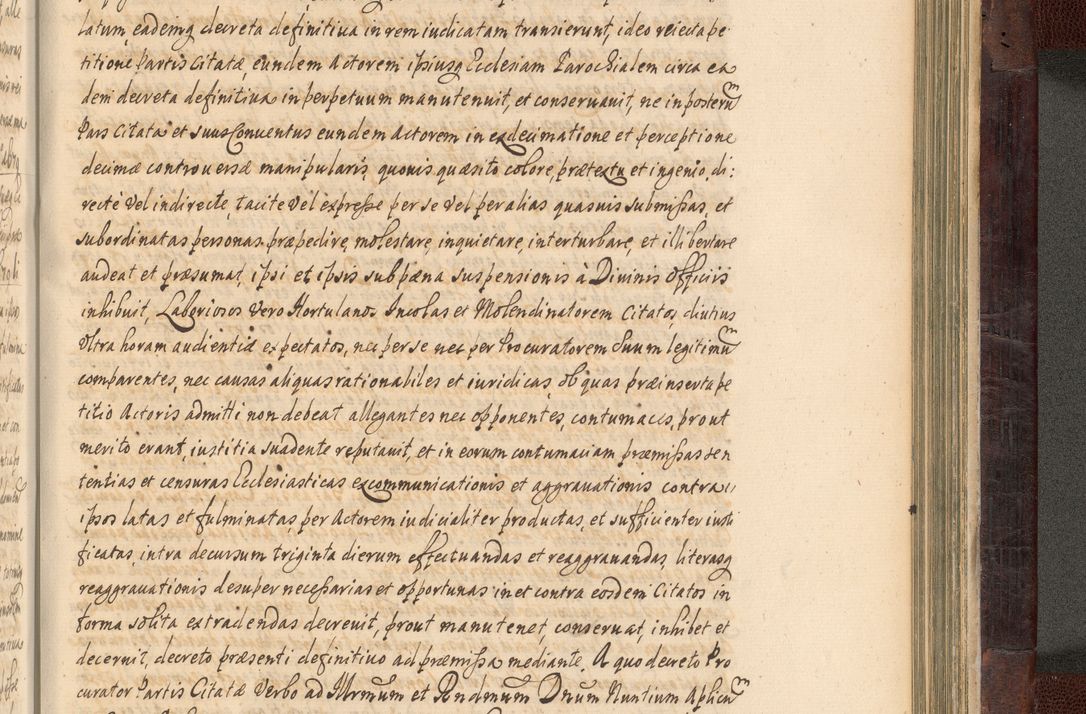 latum, eademq decreta definitiva in rem iudicatam transierunt, ideo reiecta pe
titione Partis Citatæ, eundem Actorem ipsiusq Ecclesiam Parochialem circa ea
dem decreta definitiva in perpetuum manutenuit, et conservavit, ne in posterũ
Pars Citata et suus Conventus eundem Actorem in exdecimatione et perceptione
decimæ controversæ manipularis, quovis quæsito colore, prætextu et ingenio, di:
rectè vel indirecte, tacite vel expresse per se vel per alias quasvis submissas, et
subordinatas personas præpedire, molestare, inquietare, interturbare, et illibertare
audeat et præsumat, ipsi et ipsis sub pæna suspensionis à Divinis Officiis
inhibuit, Laboriosos vero Hortulanos Incolas et Molendinatorem Citatos, diutius
Vltra horam audientiæ expectatos, nec per se nec per Procuratorem Suum legitimũ
comparentes, nec causas aliquas rationabiles et iuridicas, ob quas præinserta pe
titio Actoris admitti non debeat allegantes nec opponentes, contumaces, prout
merito erant, iustitia suadente reputavit, et in eorum contumaciam præmissas sen
tentias et censuras Ecclesiasticas excommunicationis et aggravationis contra
ipsos latas et fulminatas, per Actorem iudicialiter productas, et sufficienter iusti
ficatas, intra decursum triginta dierum effectuandas et reaggravandas, literasq
reaggravationis desuper necessarias et opportunas in et contra eosdem Citatos in
forma solita extradendas decrevit, prout manutenet, conservat, inhibet et
decernit, decreto præsenti definitivo ad præmissa mediante. A quo decreto Pro
curator Partis Citatæ Verbo ad Illrmum et Rndmum Dnum Nuntium Aplicũ